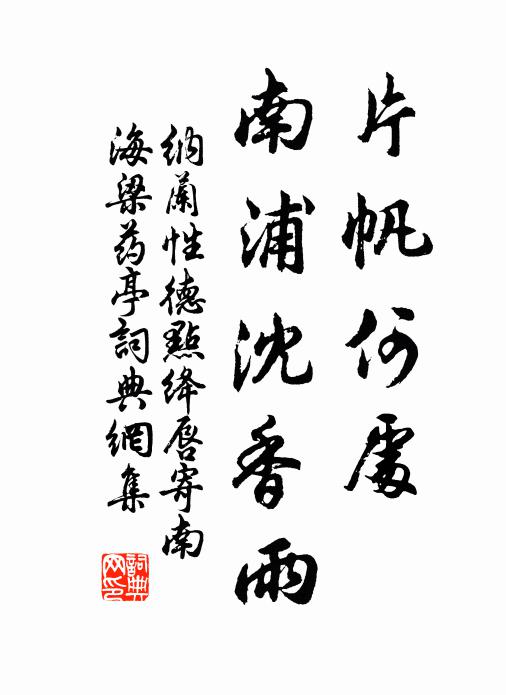 片帆何處
南浦沈香雨
納蘭性德點絳唇寄南
海梁药亭詞典網集
詞典
网印